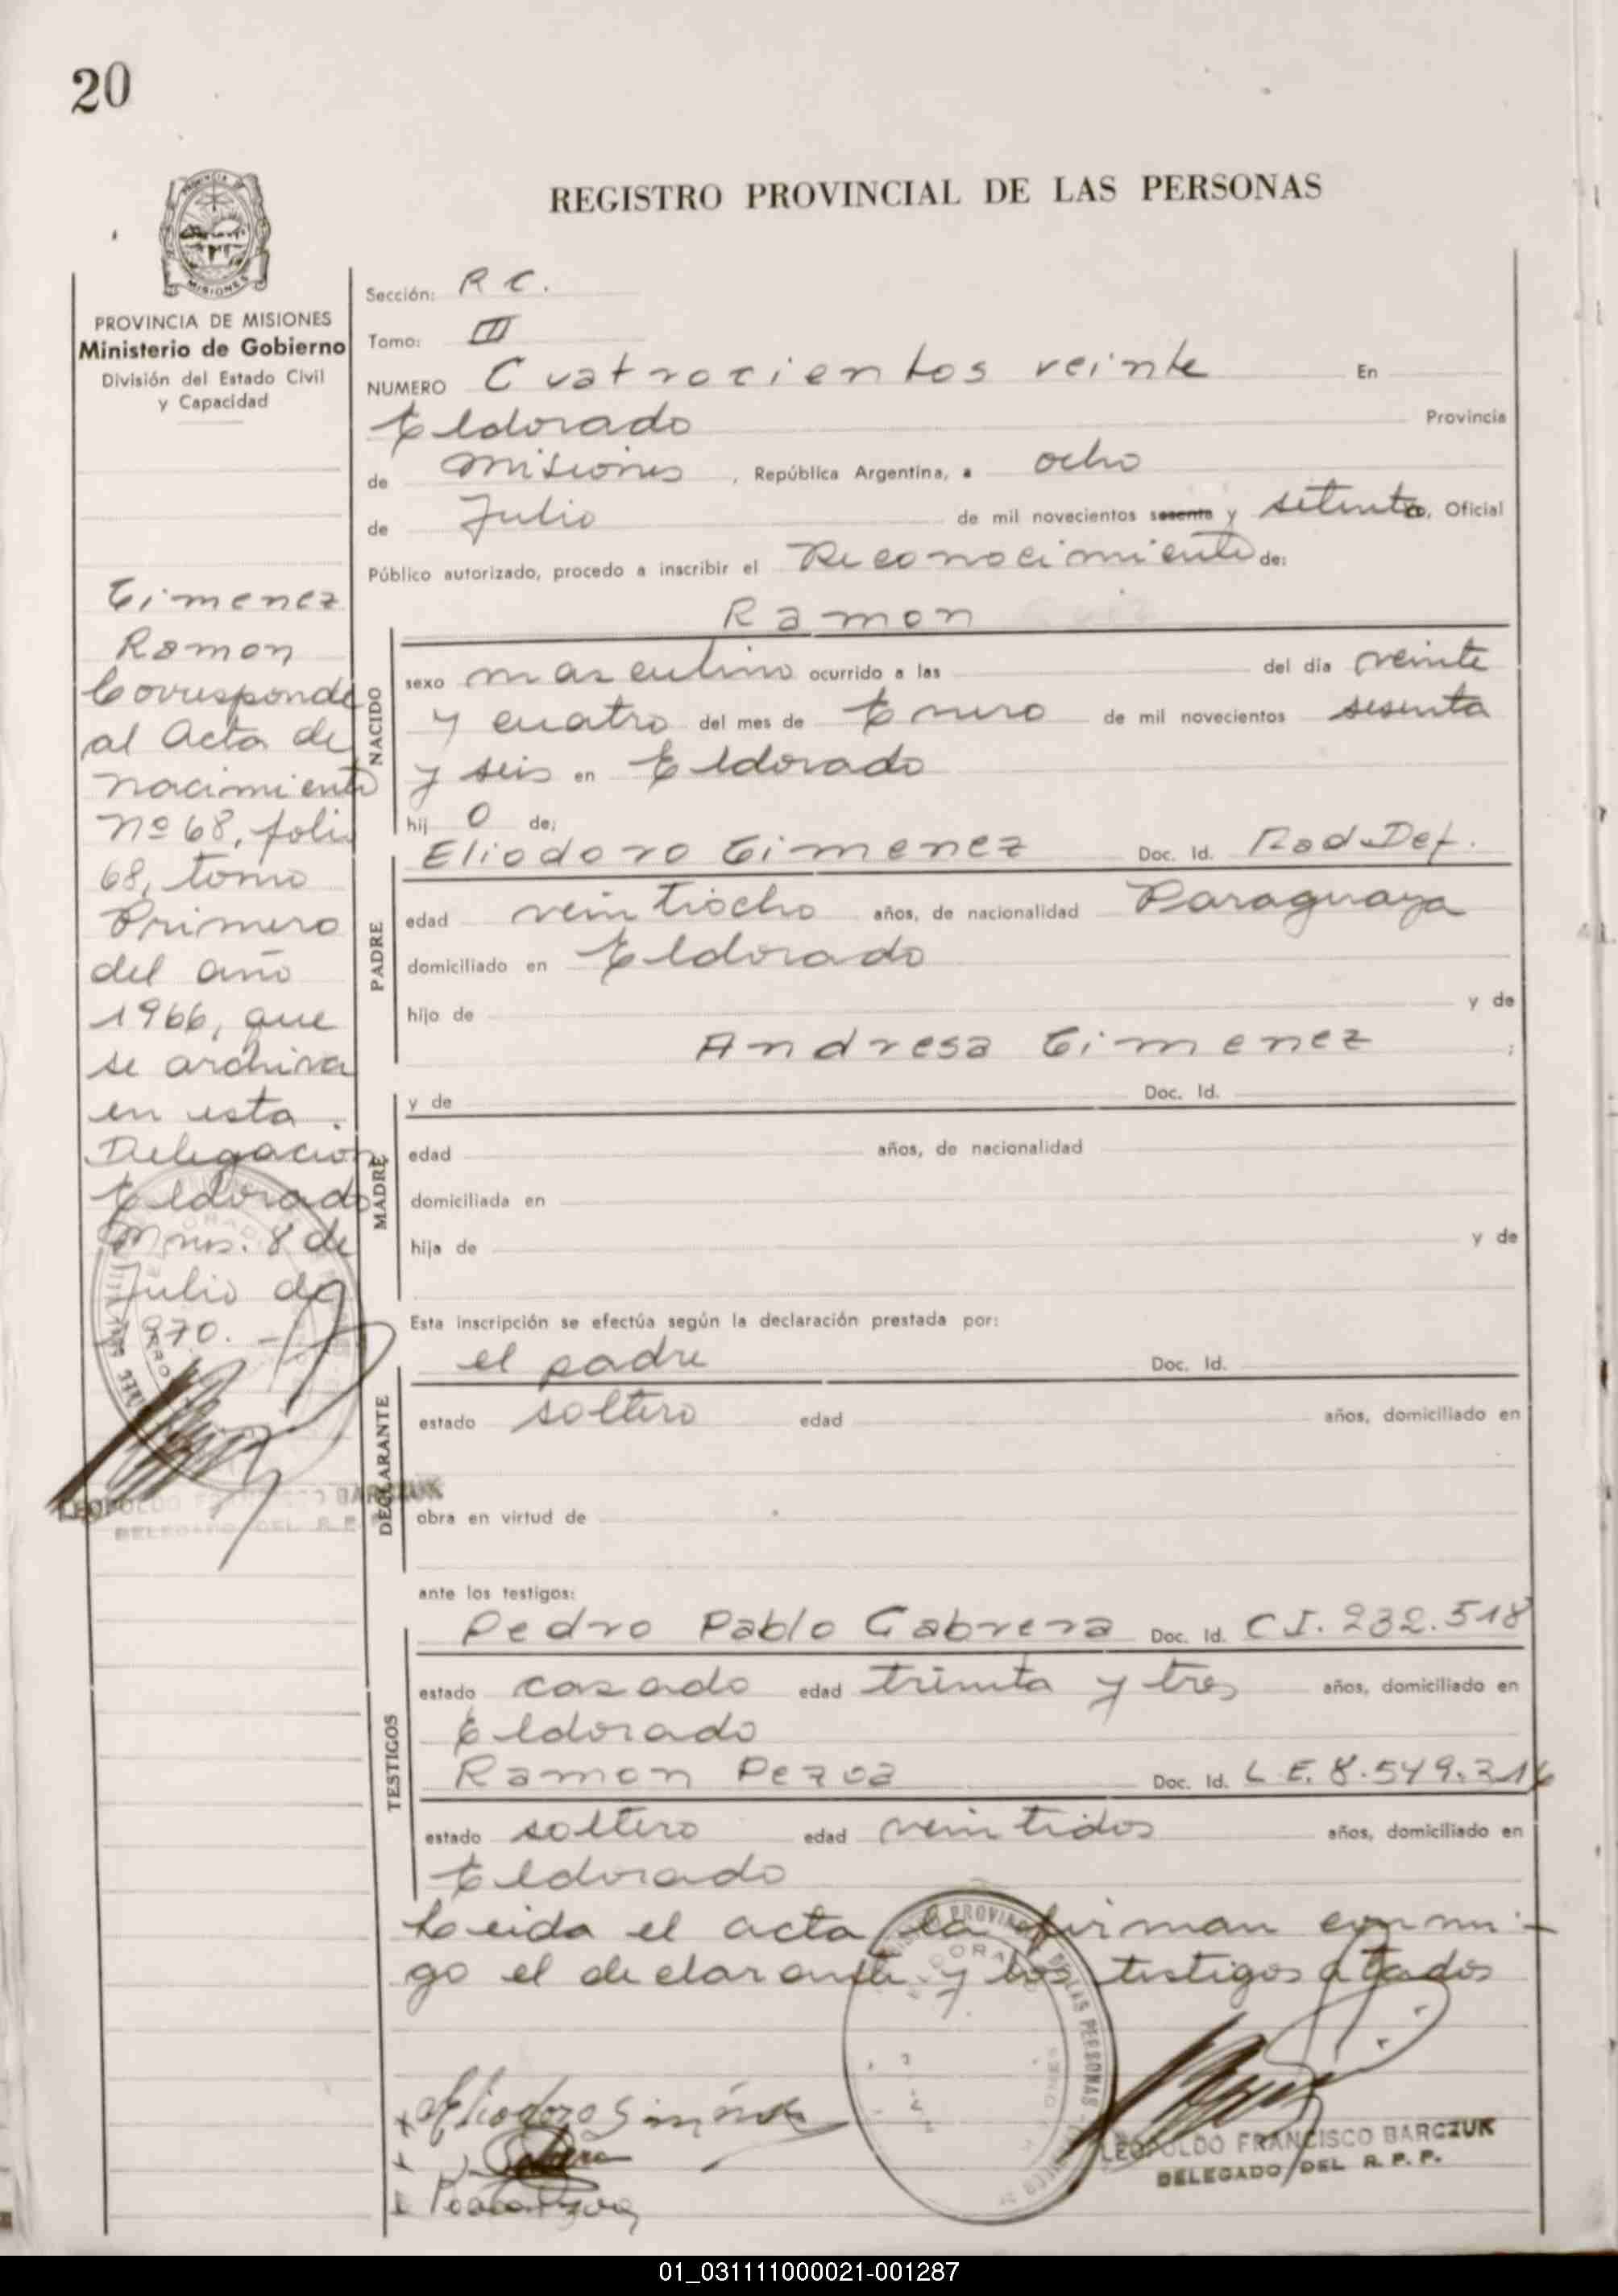 20
REGISTRO PROVINCIAL DE LAS PERSONAS
MISIONES
PROVINCIA DE MISIONES
Ministerio de Gobierno
División del Estado Civil
y Capacidad
Gimenez
Ramon
Corresponde
al Acta de
nacimiento
Nº 68, folio
68, tomo
Primero
del año
1966, que
se archiva
en esta
Delegación
Eldorado
Mnes. 8 de
Julio de
1970.
LEOPOLDO FRANCISCO BARCZUK
DELEGADO DEL R. P. P.
Sección: R C.
Tomo: III
NUMERO Cuatrocientos veinte En
Eldorado Provincia
de Misiones, República Argentina, a ocho
de Julio de mil novecientos sesenta y setenta, Oficial
Público autorizado, procedo a inscribir el Reconocimiento de:
Ramon
NACIDO
sexo masculino ocurrido a las del día veinte
y cuatro del mes de Enero de mil novecientos sesenta
y seis en Eldorado
hij o de;
Eliodoro Gimenez Doc. Id. Rad. Def.
PADRE
edad veintiocho años, de nacionalidad Paraguaya
domiciliado en Eldorado
hijo de y de
Andresa Gimenez ;
y de Doc. Id.
MADRE
edad años, de nacionalidad
domiciliada en
hija de y de
Esta inscripción se efectúa según la declaración prestada por:
el padre Doc. Id.
DECLARANTE
estado soltero edad años, domiciliado en
obra en virtud de
ante los testigos:
Pedro Pablo Cabrera Doc. Id. C.I. 232.518
TESTIGOS
estado casado edad treinta y tres años, domiciliado en
Eldorado
Ramon Pezoa Doc. Id. L.E. 8.549.316
estado soltero edad veintidos años, domiciliado en
Eldorado
Leida el acta la firman conmi-
go el declarante y los testigos citados
Eliodoro Giménez
LEOPOLDO FRANCISCO BARCZUK
DELEGADO DEL R. P. P.
01_031111000021-001287